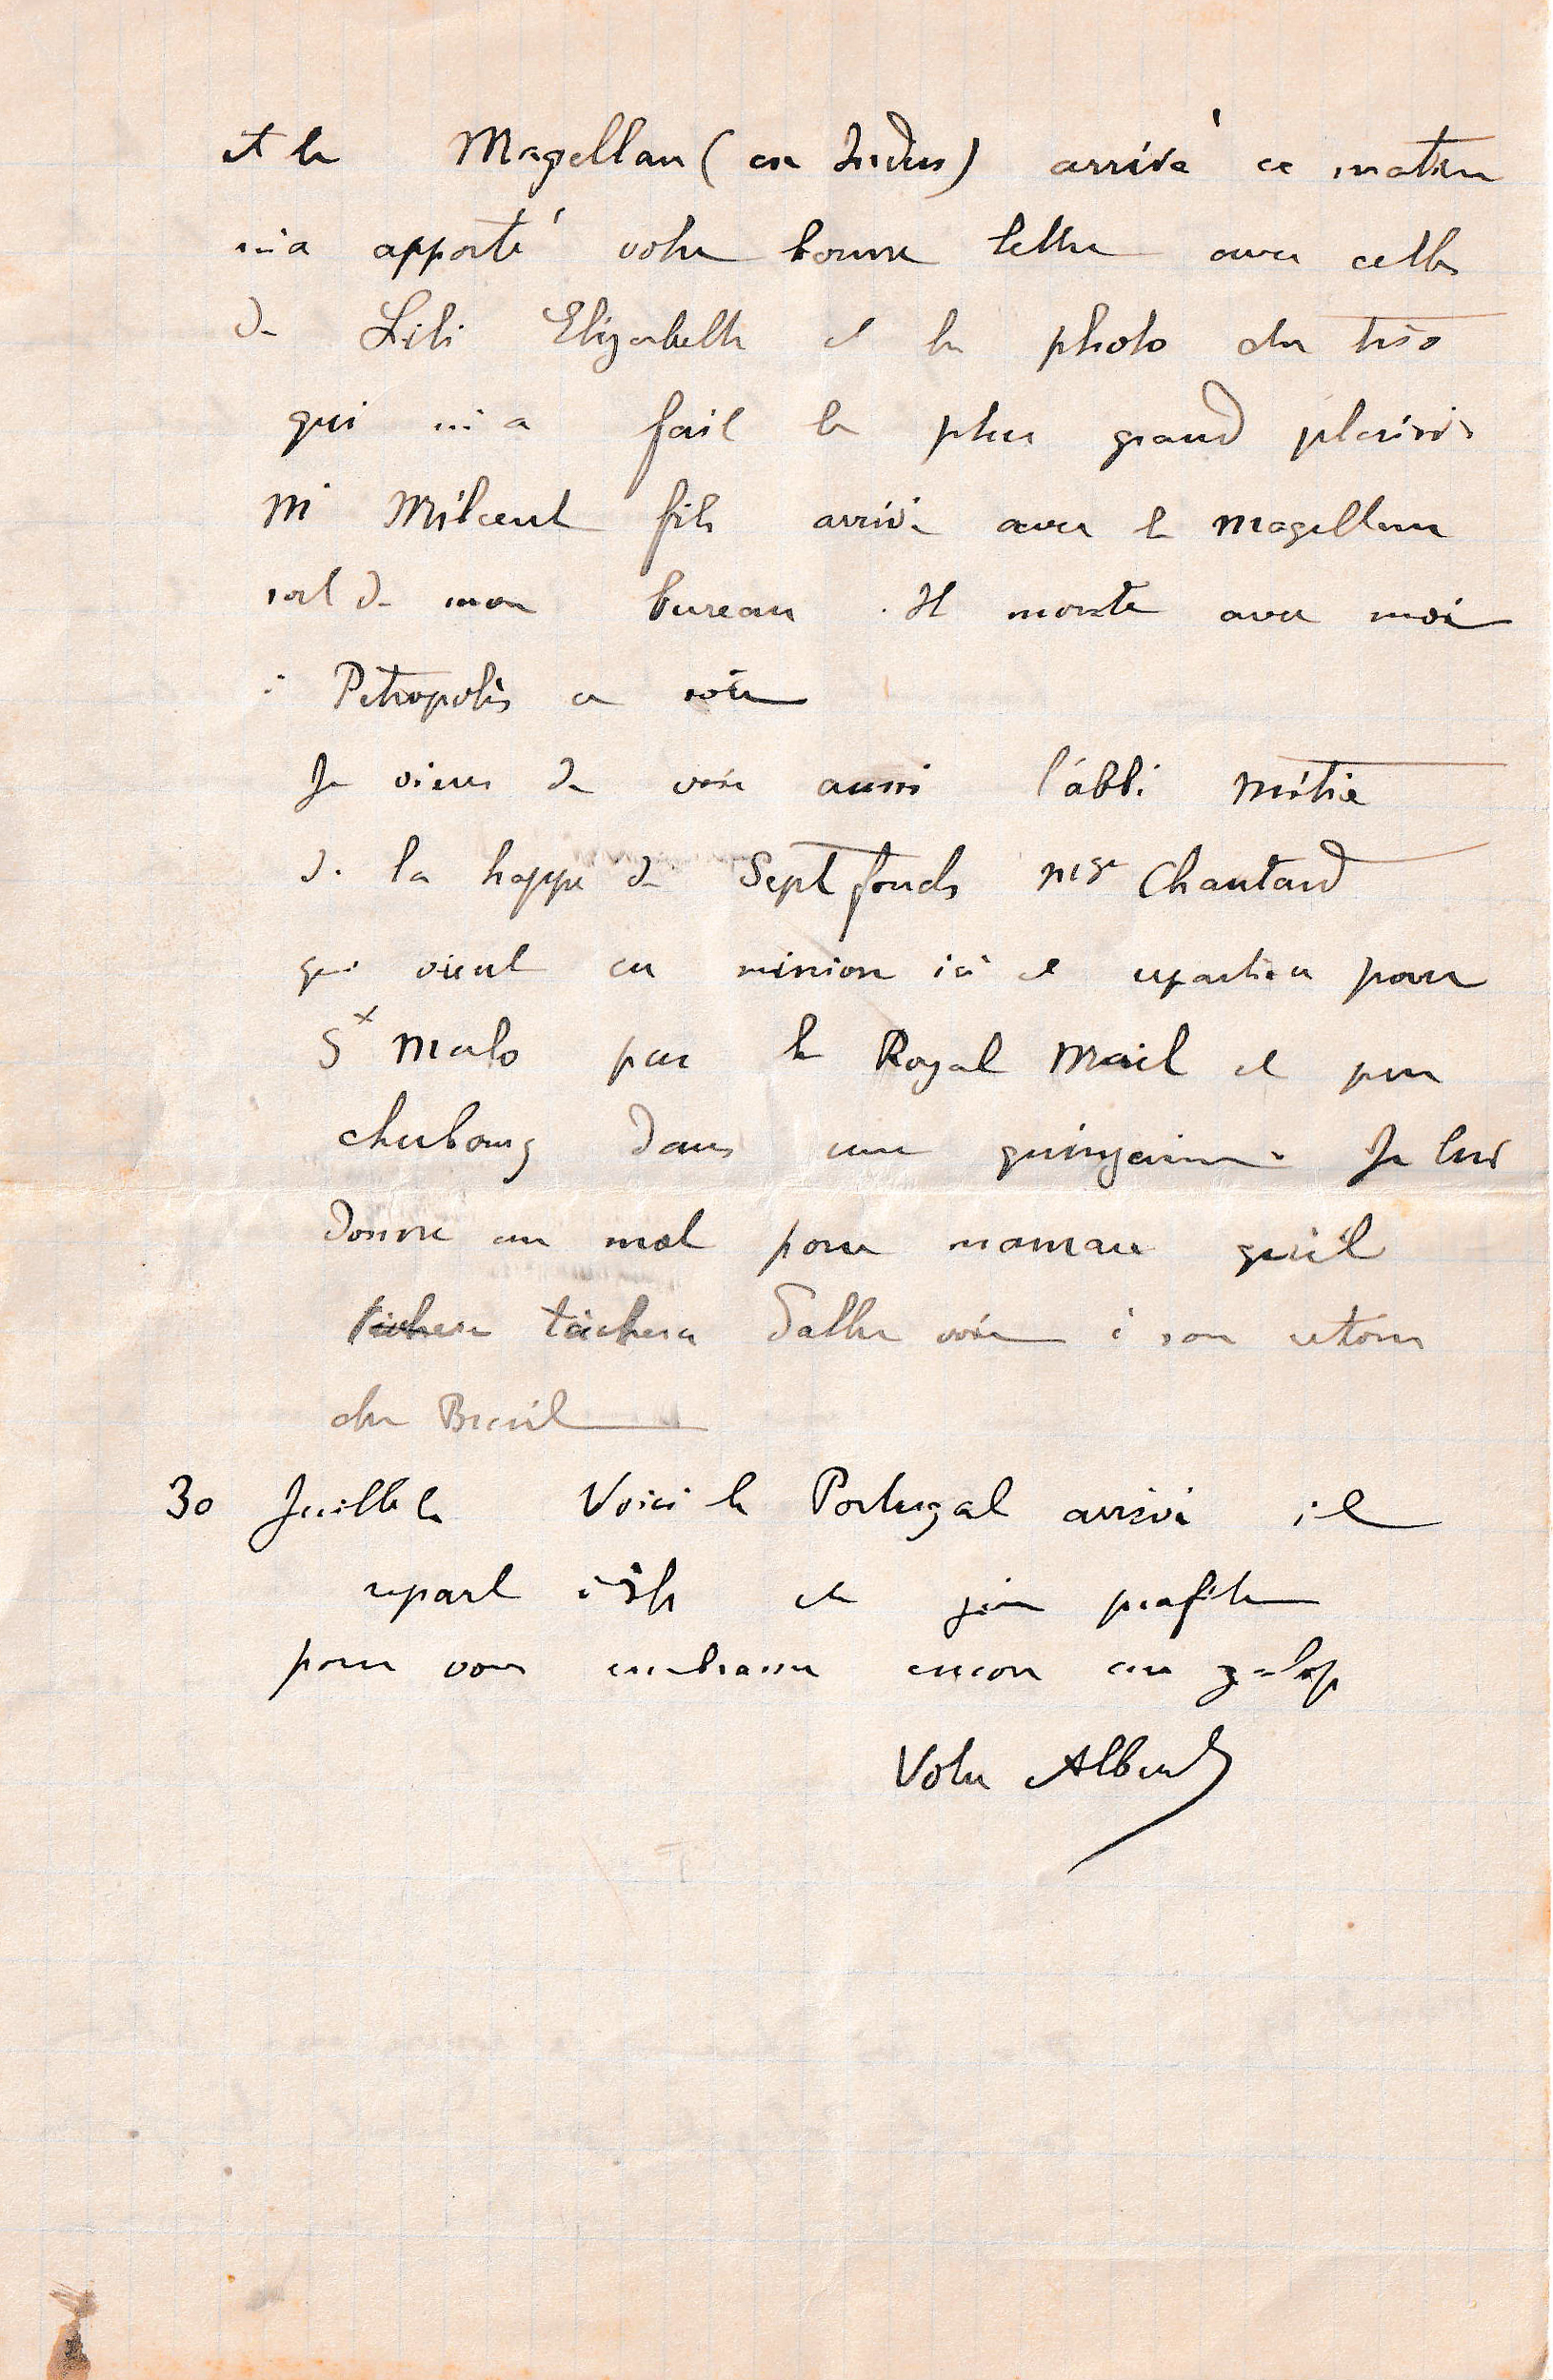 et le Magellan (ex Indus) arrivé ce matin
m'a apporté votre bonne lettre avec celles
de Lili Elizabeth et la photo du trio
qui m'a fait le plus grand plaisir
Mr Milcent fils arrivé avec le Magellan
sort de mon bureau. Il monte avec moi
à Petropolis ce soir
Je viens de voir aussi l'abbé mitré
de la trappe de Sept fonds Mgr Chautard
qui vient en mission ici et repartira pour
St Malo par le Royal Mail et par
Cherbourg dans une quinzaine. Je lui
donne un mot pour maman qu'il
tachera tâchera d'aller voir à son retour
du Bresil
30 Juillet Voici le Portugal arrivé il
repart à 3h et j'en profite
pour vous embrasser encore au galop
Votre Albert